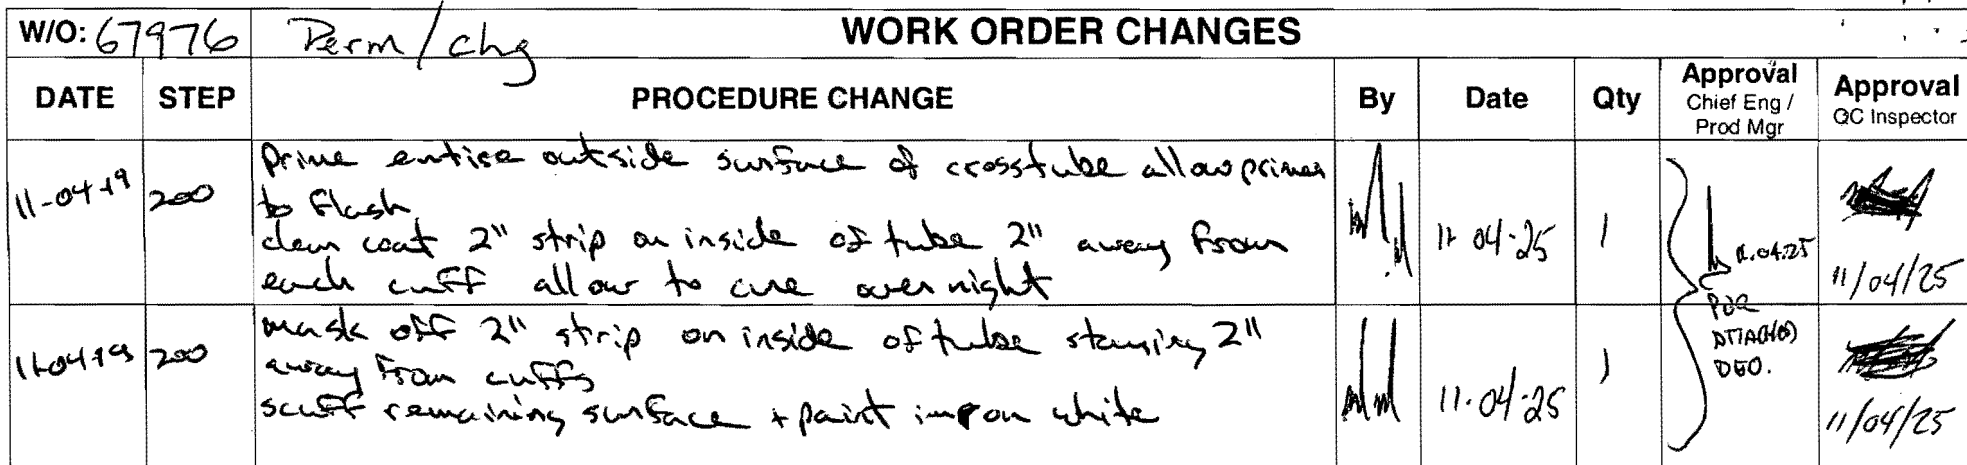 W/O: 67976 Perm/chg WORK ORDER CHANGES
DATE STEP PROCEDURE CHANGE By Date Qty Approval Chief Eng / Prod Mgr Approval QC Inspector
11-04-19 200 Prime entire outside surface of crosstube allow primer
to flash
clear coat 2" strip on inside of tube 2" away from
each cuff allow to cure overnight
11-04-25 1 11.04.25 11/04/25
11-04-19 200 mask off 2" strip on inside of tube staying 2"
away from cuffs
scuff remaining surface + paint impon white
11-04-25 1 DEO. 11/04/25